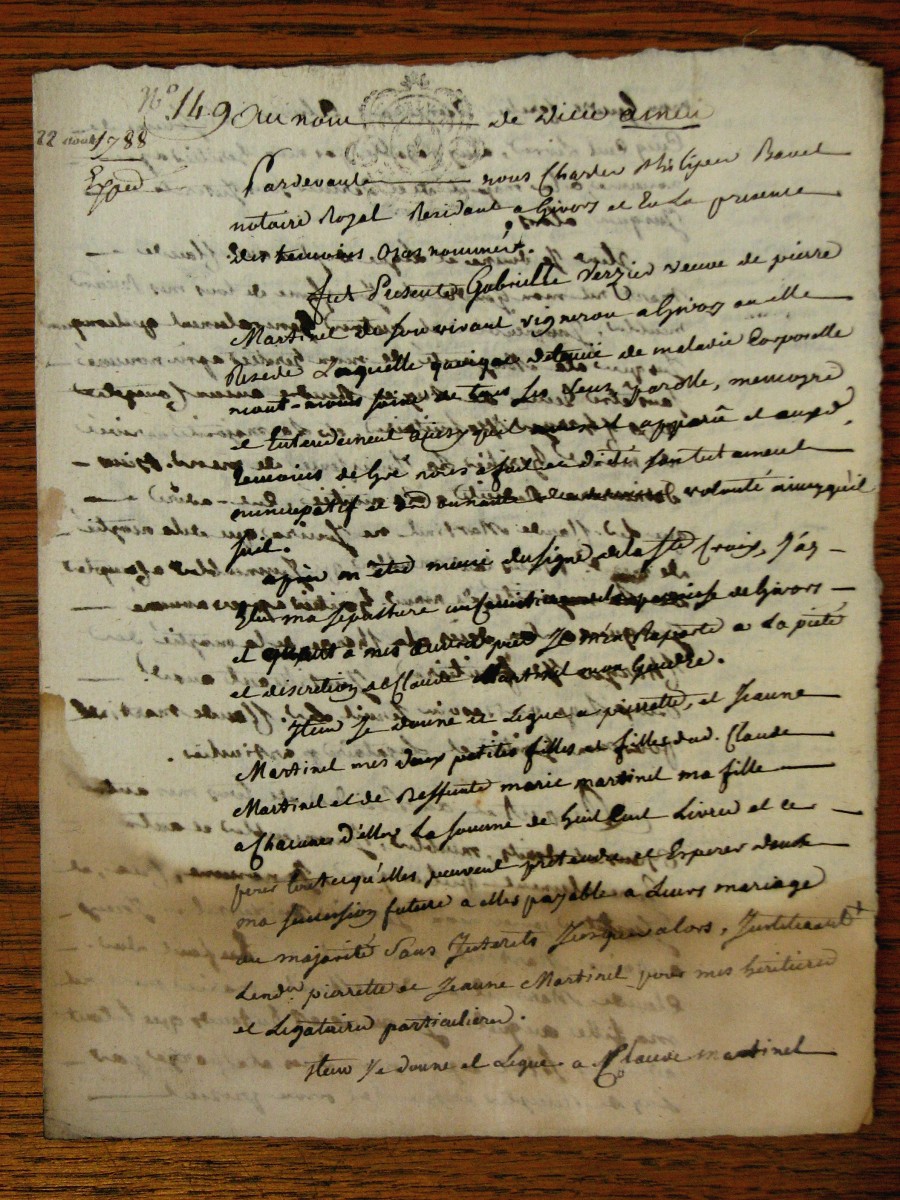 N° 149
22 août 1788
Exped
Au nom de Dieu amen
Pardevant nous Charles Philipen
notaire Royal Residant a Givors et En La presence
des temoins bas nommés.
fut Presente Gabrielle Verzier veuve de pierre
Martinel de son vivant vigneron a Givors ou elle
Reside Laquelle quoique detenüe de maladie Corporelle
moins saine de tous Les sens, parolle, memoyre
et Entendement apparû et auxd
temoins de Gré nous a fait et dicté son testament
nuncupatif et volonté ainsy qu'il
suit.
après m'être munie du signe de la Ste Croix, J'ay
Elu ma sepulture au Cimetiere de la paroisse de Givors
et quant a mes Je m'en Raporte a La pieté
et discretion de Claude Martinel mon Gendre.
Item Je donne et Legue a pierrette, et Jeanne
Martinel mes deux petites filles et filles dud. Claude
Martinel et de deffunte marie martinel ma fille
a Chacunes d'elles La somme de huit Cent Livres et ce
pour tout ce qu'elles peuvent pretendre et Esperer dans
ma succession future a elles payable a Leurs mariage
ou majorité Sans Interets Jusques alors, Instituant
Lesd. pierrette et Jeanne Martinel pour mes héritieres
et Legataires particulieres.
Item Je donne et Legue a Claude martinel